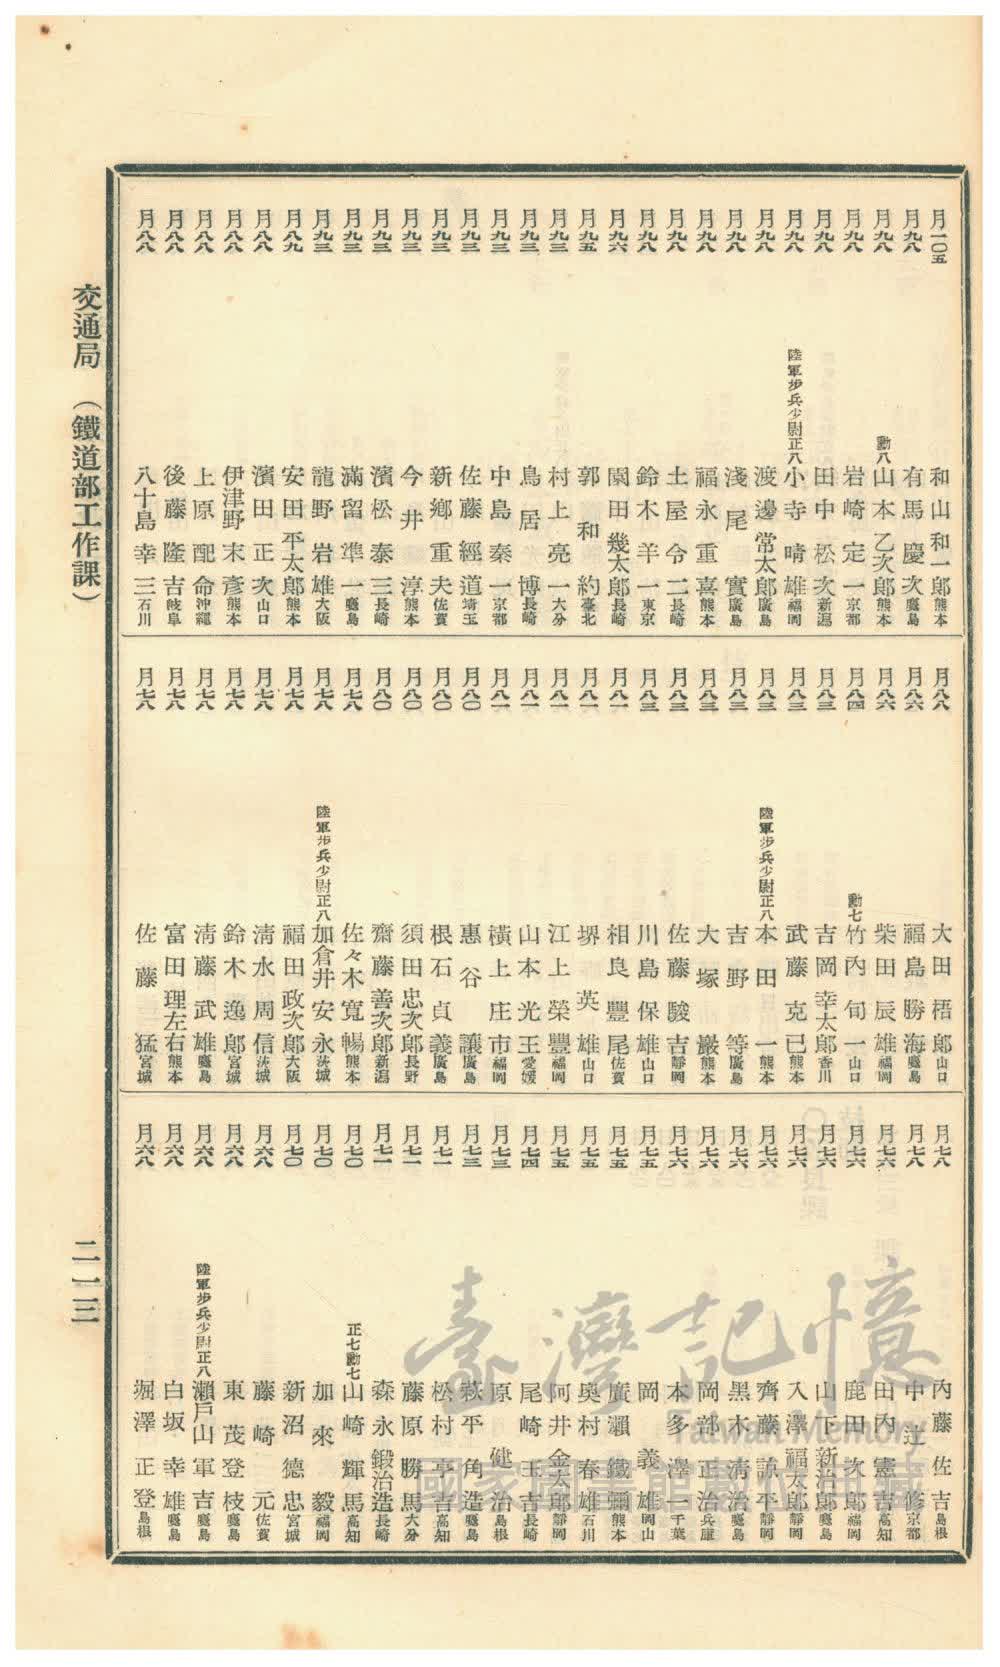 交通局 (鐵道部工作課)
二一三
月一〇五 和山和一郎 熊本
月九八 有馬慶次 鹿島
月九八 勳八 山本乙次郎 熊本
月九八 岩崎定一 京都
月九八 田中松次 新潟
月九八 陸軍步兵少尉正八 小寺晴雄 福岡
月九八 渡邊常太郎 廣島
月九八 淺尾實 廣島
月九八 福永重喜 熊本
月九八 土屋令二 長崎
月九八 鈴木羊一 東京
月九六 園田幾太郎 長崎
月九五 郭和約 臺北
月九三 村上亮一 大分
月九三 鳥居博 長崎
月九三 中島秦一 京都
月九三 佐藤經道 埼玉
月九三 新鄉重夫 佐賀
月九三 今井淳 熊本
月九三 濱松泰三 長崎
月九三 滿留準一 鹿島
月九三 龍野岩雄 大阪
月八九 安田平太郎 熊本
月八八 濱田正次 山口
月八八 伊津野末彥 熊本
月八八 上原配命 沖繩
月八八 後藤隆吉 岐阜
月八八 八十島幸三 石川
月八八 大田梧郎 山口
月八六 福島勝海 鹿島
月八六 柴田辰雄 福岡
月八四 勳七 竹內旬一 山口
月八三 吉岡幸太郎 香川
月八三 武藤克已 熊本
月八三 陸軍步兵少尉正八 本田一 熊本
月八三 吉野等 廣島
月八三 大塚巖 熊本
月八三 佐藤駿吉 靜岡
月八三 川島保雄 山口
月八一 相良豐尾 佐賀
月八一 堺英雄 山口
月八一 江上榮豐 福岡
月八一 山本光王 愛媛
月八一 橫上庄市 福岡
月八〇 惠谷讓 廣島
月八〇 根石貞義 廣島
月八〇 須田忠次郎 長野
月八〇 齋藤善次郎 新潟
月七八 佐々木寬暢 熊本
月七八 陸軍步兵少尉正八 加倉井安永 茨城
月七八 福田政次郎 大阪
月七八 清水周信 茨城
月七八 鈴木逸郎 宮城
月七八 清藤武雄 鹿島
月七八 富田理左右 熊本
月七八 佐藤猛 宮城
月七八 內藤佐吉 島根
月七八 中辻修 京都
月七六 田內憲吉 高知
月七六 鹿田次郎 福岡
月七六 山下新治郎 鹿島
月七六 入澤福太郎 靜岡
月七六 齊藤諒平 靜岡
月七六 黑木清治 鹿島
月七六 岡部正治 兵庫
月七六 本多澤一 千葉
月七五 岡義雄 岡山
月七五 廣瀨鐵彌 熊本
月七五 奧村春雄 石川
月七五 阿井金太郎 靜岡
月七四 尾崎王吉 長崎
月七三 原健治 島根
月七三 萩平角造 鹿島
月七一 松村亨吉 高知
月七一 藤原勝馬 大分
月七一 森永鍛治造 長崎
月七〇 正七勳七 山崎輝馬 高知
月七〇 加來毅 福岡
月七〇 新沼德忠 宮城
月六八 藤崎元 佐賀
月六八 東茂登枝 鹿島
月六八 陸軍步兵少尉正八 瀨戶山軍吉 鹿島
月六八 白坂幸雄 鹿島
月六八 堀澤正登 島根
臺灣記憶
Taiwan Memory
國家圖書館數位典藏